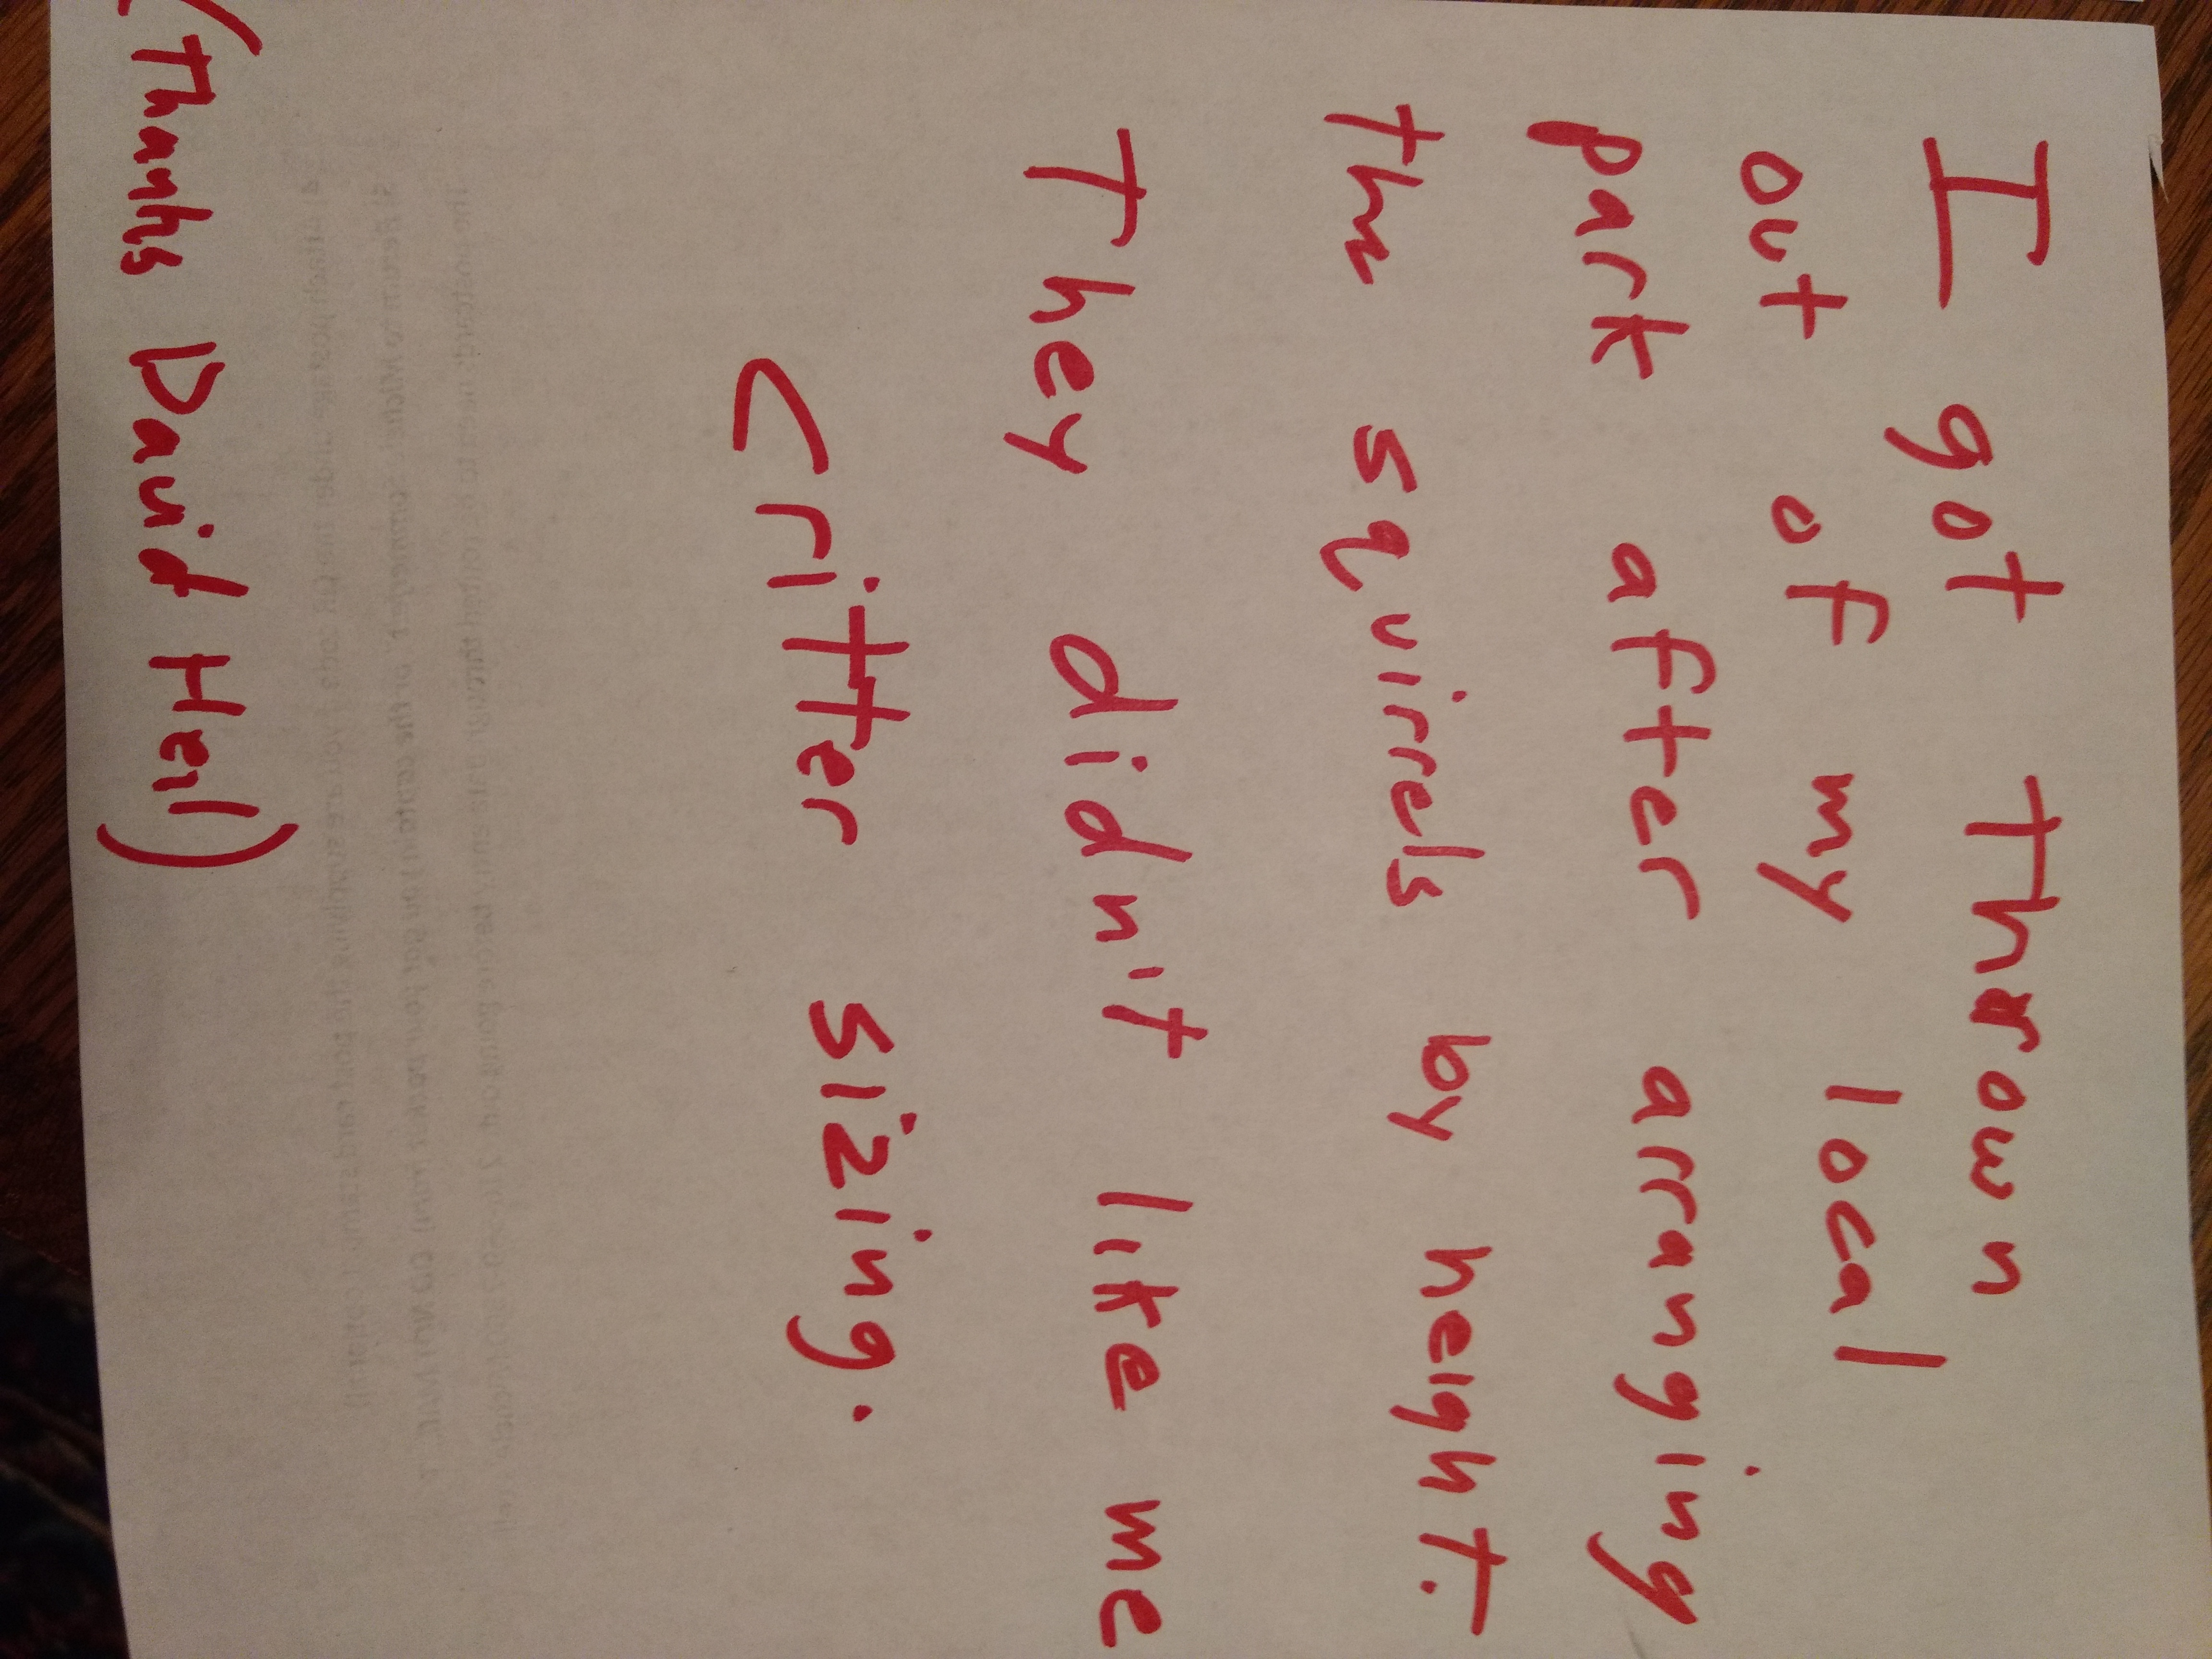 I got thrown
out of my local
park after arranging
the squirrels by height.
They didn't like me
Critter sizing.
(Thanks David Heil)